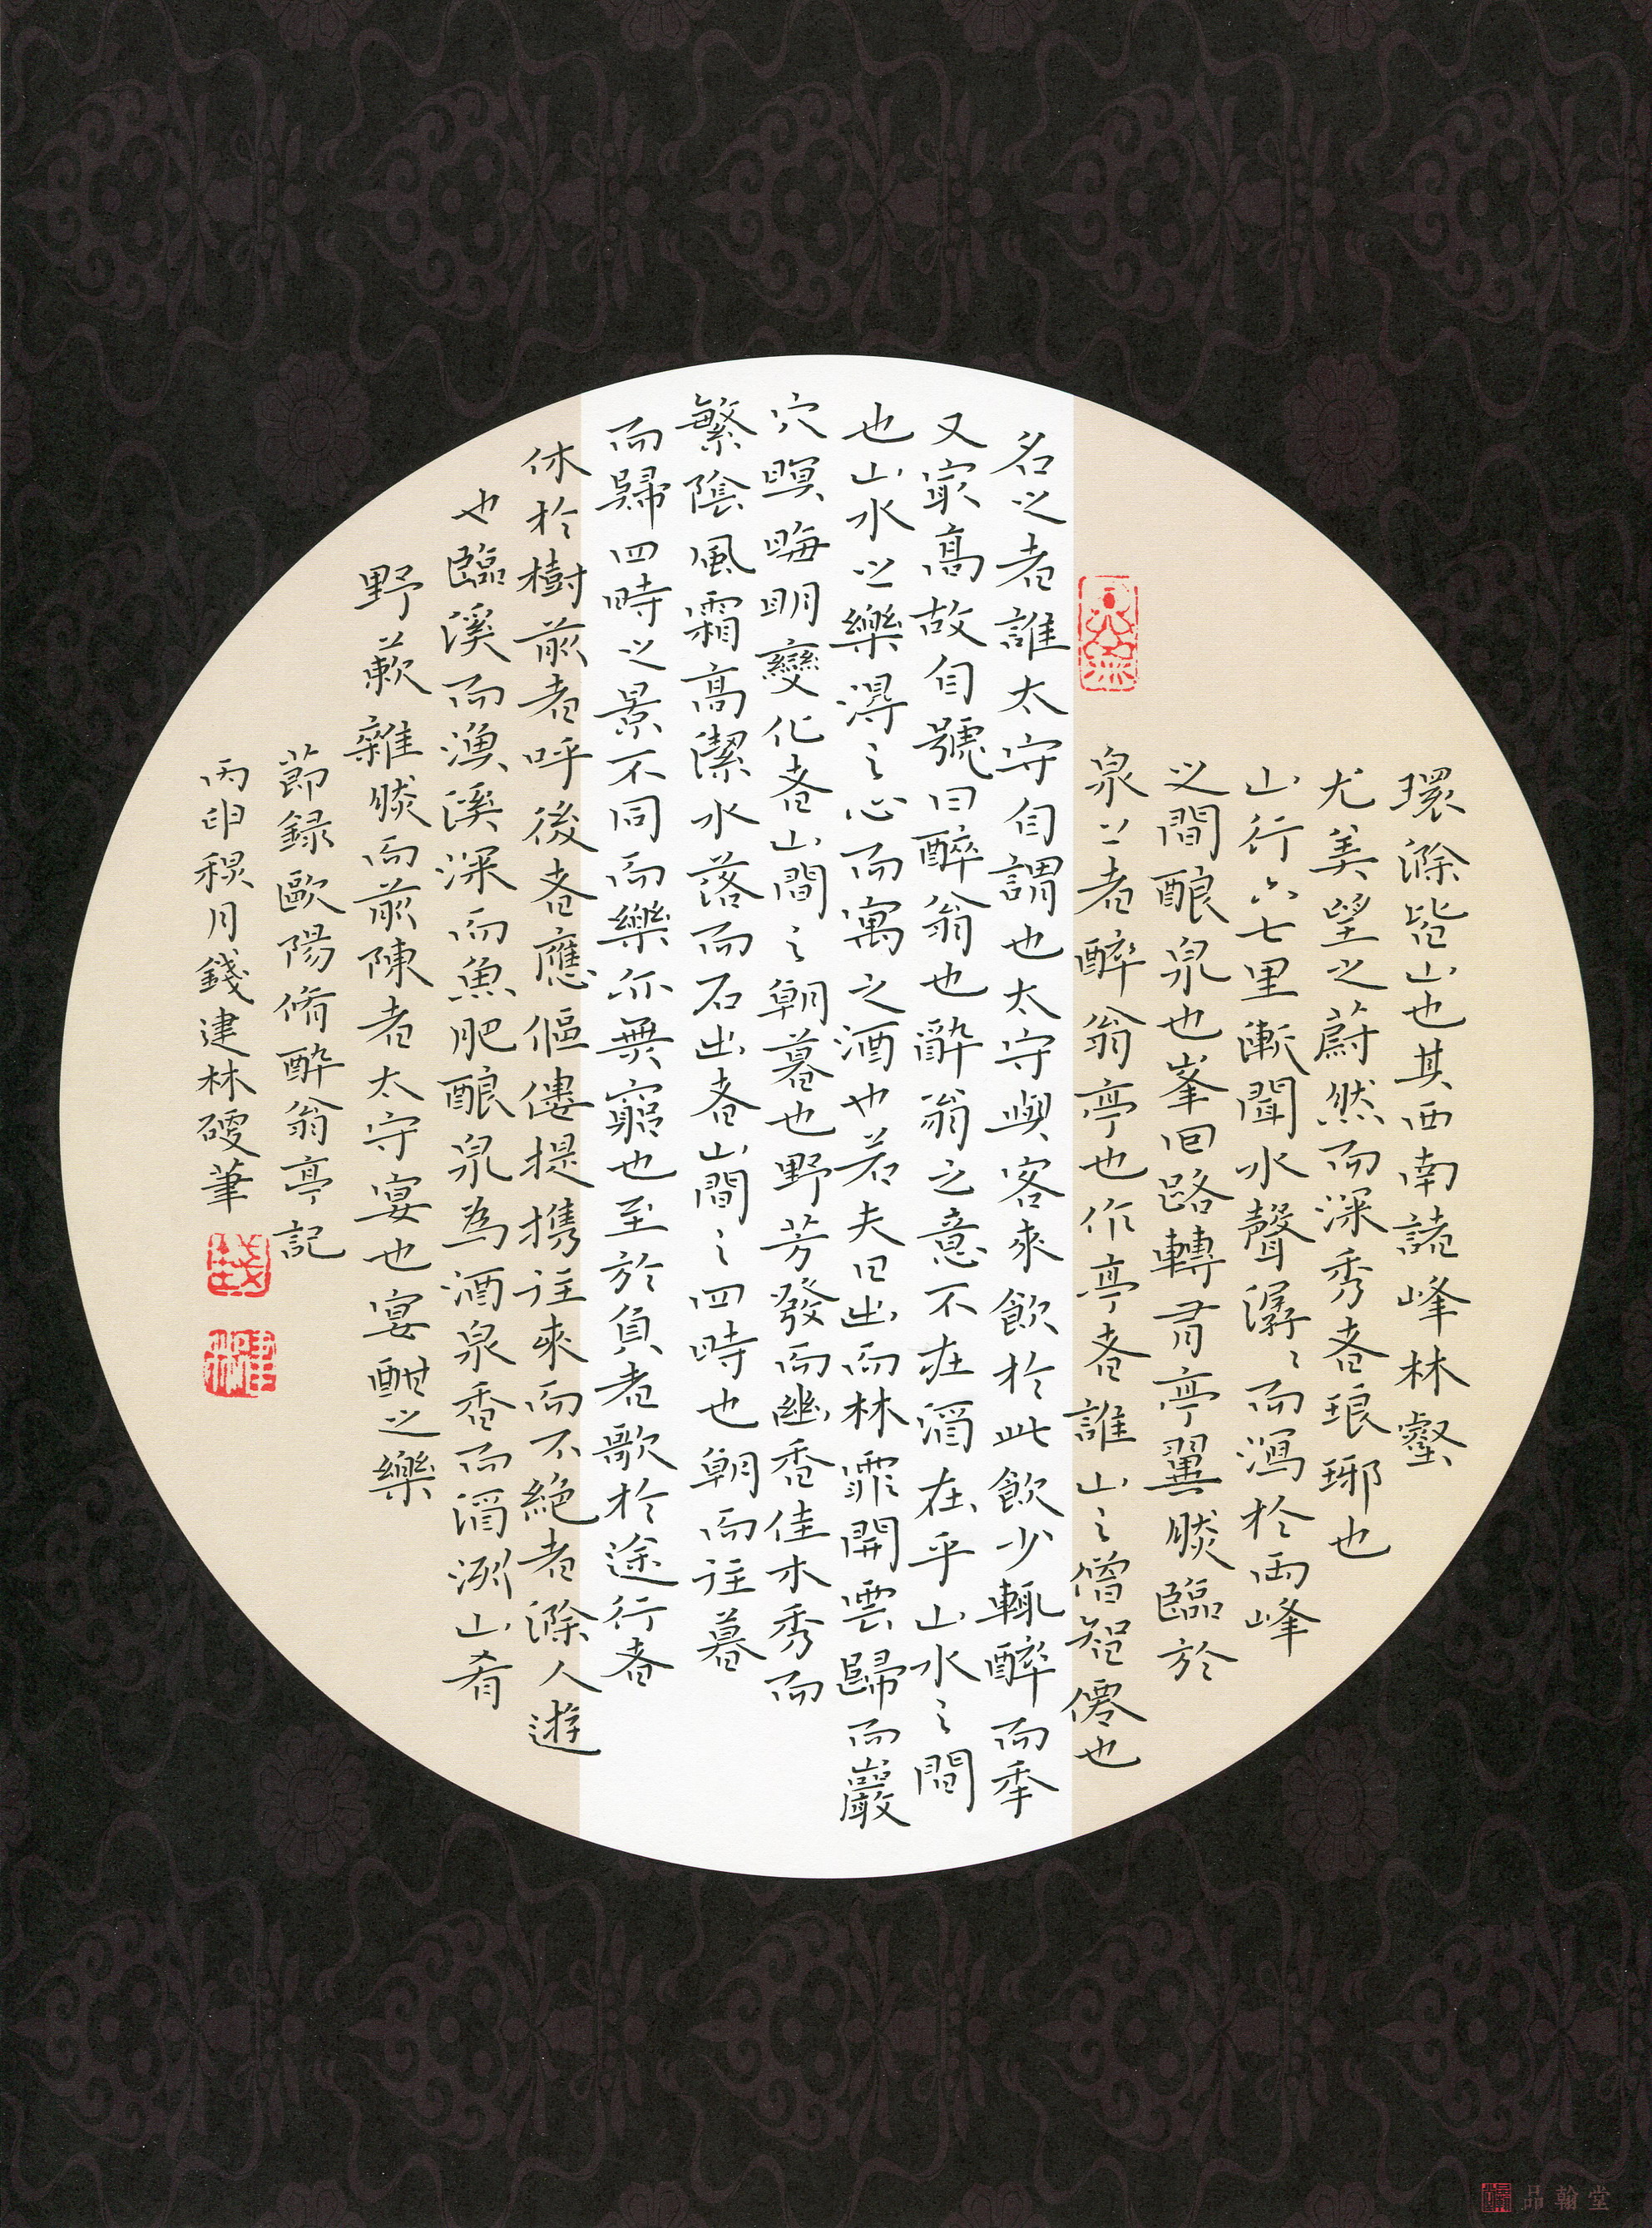 環滁皆山也其西南諸峰林壑
尤美望之蔚然而深秀者琅琊也
山行六七里漸聞水聲潺〻而瀉於兩峰
之間釀泉也峯回路轉有亭翼然臨於
泉上者醉翁亭也作亭者誰山之僧智僊也
名之者誰太守自謂也太守與客來飲於此飲少輒醉而年
又寂高故自號曰醉翁也醉翁之意不在酒在乎山水之間
也山水之樂得之心而寓之酒也若夫日出而林霏開雲歸而巖
穴暝晦明變化者山間之朝暮也野芳發而幽香佳木秀而
繁陰風霜高潔水落而石出者山間之四時也朝而往暮
而歸四時之景不同而樂亦無窮也至於負者歌於途行者
休於樹前者呼後者應傴僂提攜往來而不絕者滁人遊
也臨溪而漁溪深而魚肥釀泉為酒泉香而酒洌山肴
野蔌雜然而前陳者太守宴也宴酣之樂
節錄歐陽脩醉翁亭記
丙申穐月錢建林硬筆
品翰堂